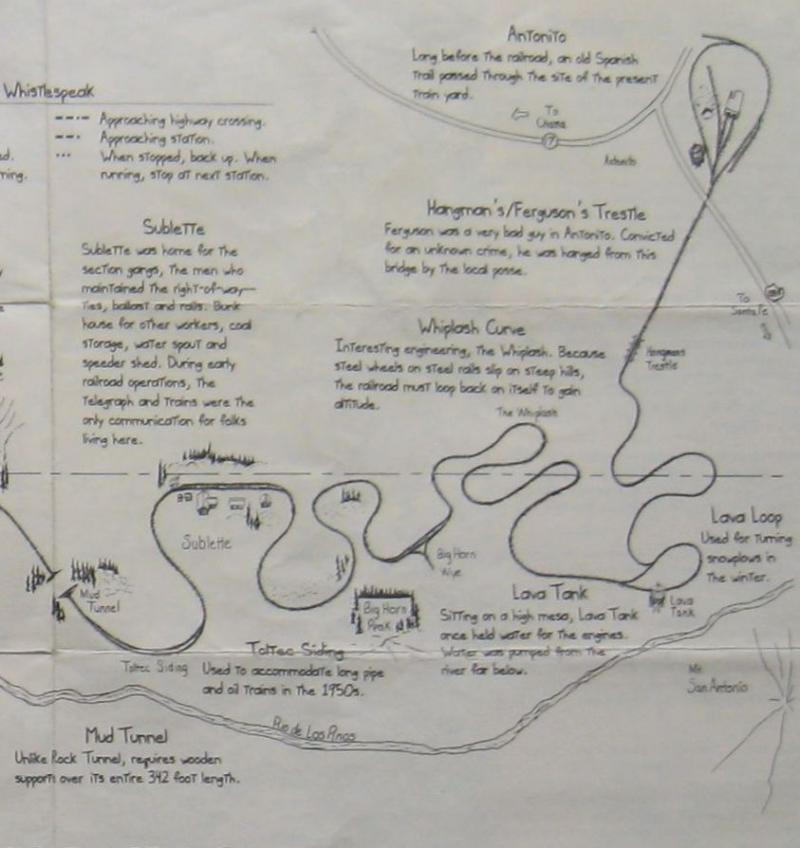 Whistlespeak
Approaching highway crossing.
Approaching station.
When stopped, back up. When
running, stop at next station.
ed.
ning.
Antonito
Long before the railroad, an old Spanish
trail passed through the site of the present
train yard.
To
Chama
Antonito
Sublette
Sublette was home for the
section gangs, the men who
maintained the right-of-way—
ties, ballast and rails. Bunk
house for other workers, coal
storage, water spout and
speeder shed. During early
railroad operations, the
telegraph and trains were the
only communication for folks
living here.
Hangman's/Ferguson's Trestle
Ferguson was a very bad guy in Antonito. Convicted
for an unknown crime, he was hanged from this
bridge by the local posse.
To
Santa Fe
Hangmans
Trestle
Whiplash Curve
Interesting engineering, the Whiplash. Because
steel wheels on steel rails slip on steep hills,
the railroad must loop back on itself to gain
altitude.
The Whiplash
Sublette
Big Horn
Wye
Lava Loop
Used for turning
snowplows in
the winter.
Mud
Tunnel
Big Horn
Peak
Lava Tank
Sitting on a high mesa, Lava Tank
once held water for the engines.
Water was pumped from the
river far below.
Lava
Tank
Toltec Siding
Toltec Siding
Used to accommodate long pipe
and oil trains in the 1950s.
Mt.
San Antonio
Rio de Los Pinos
Mud Tunnel
Unlike Rock Tunnel, requires wooden
supports over its entire 342 foot length.